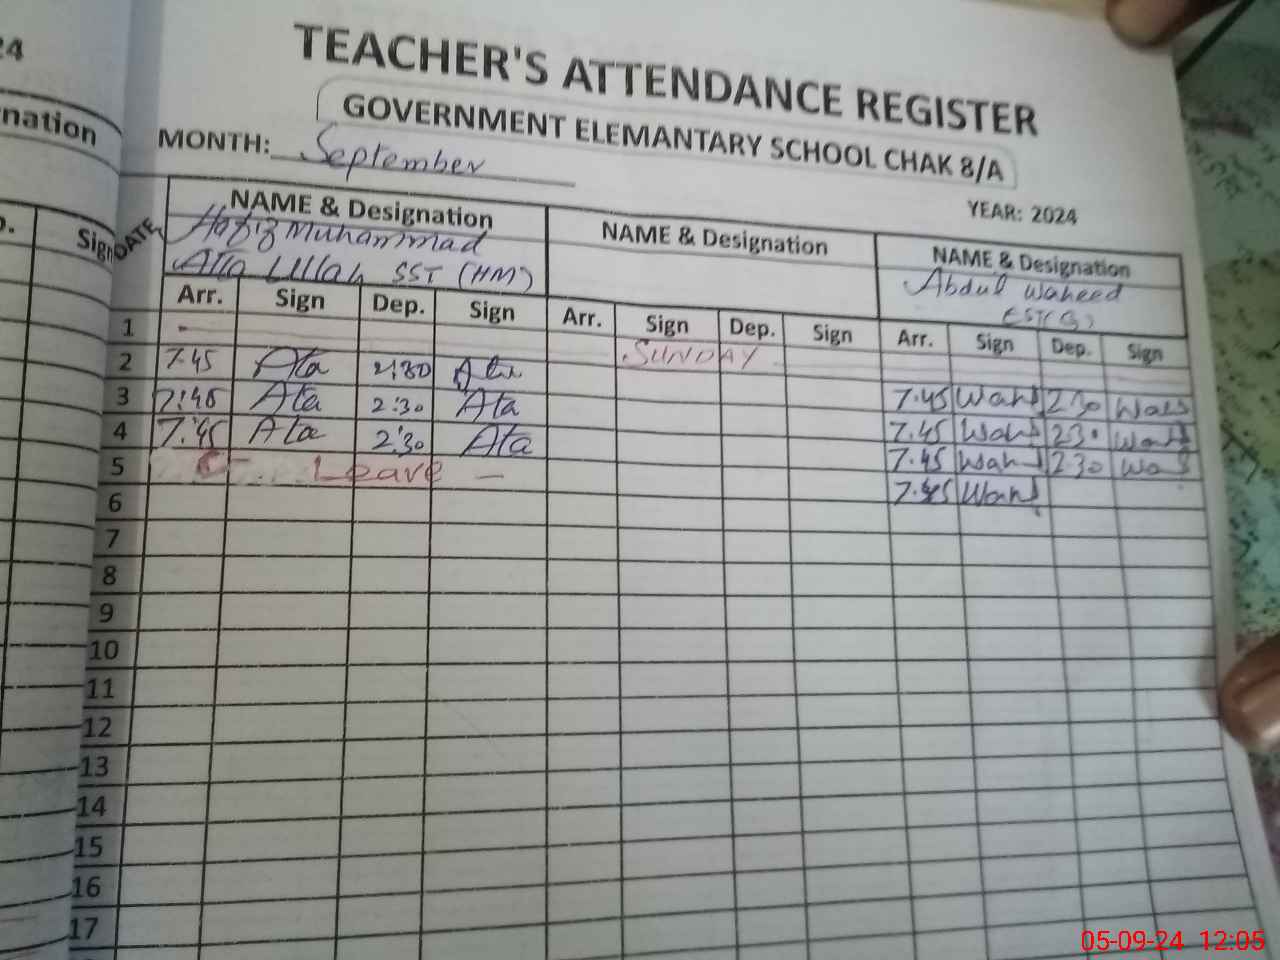 24
TEACHER'S ATTENDANCE REGISTER
GOVERNMENT ELEMANTARY SCHOOL CHAK 8/A
MONTH: September
YEAR: 2024
nation
Sign
DATE
NAME & Designation NAME & Designation NAME & Designation
Hafiz Muhammad
Atta Ullah SST (HM)
Abdul Waheed
Arr. Sign Dep. Sign Arr. Sign Dep. Sign Arr. Sign Dep. Sign
1 - SUNDAY
2 7.45 Ata 2:30 Ata 7.45 2:30
3 7:45 Ata 2:30 Ata 7.45 230
4 7:45 Ata 2:30 Ata 7.45 230
5 Leave - 7.45
6
7
8
9
10
11
12
13
14
15
16
17
05-09-24 12:05